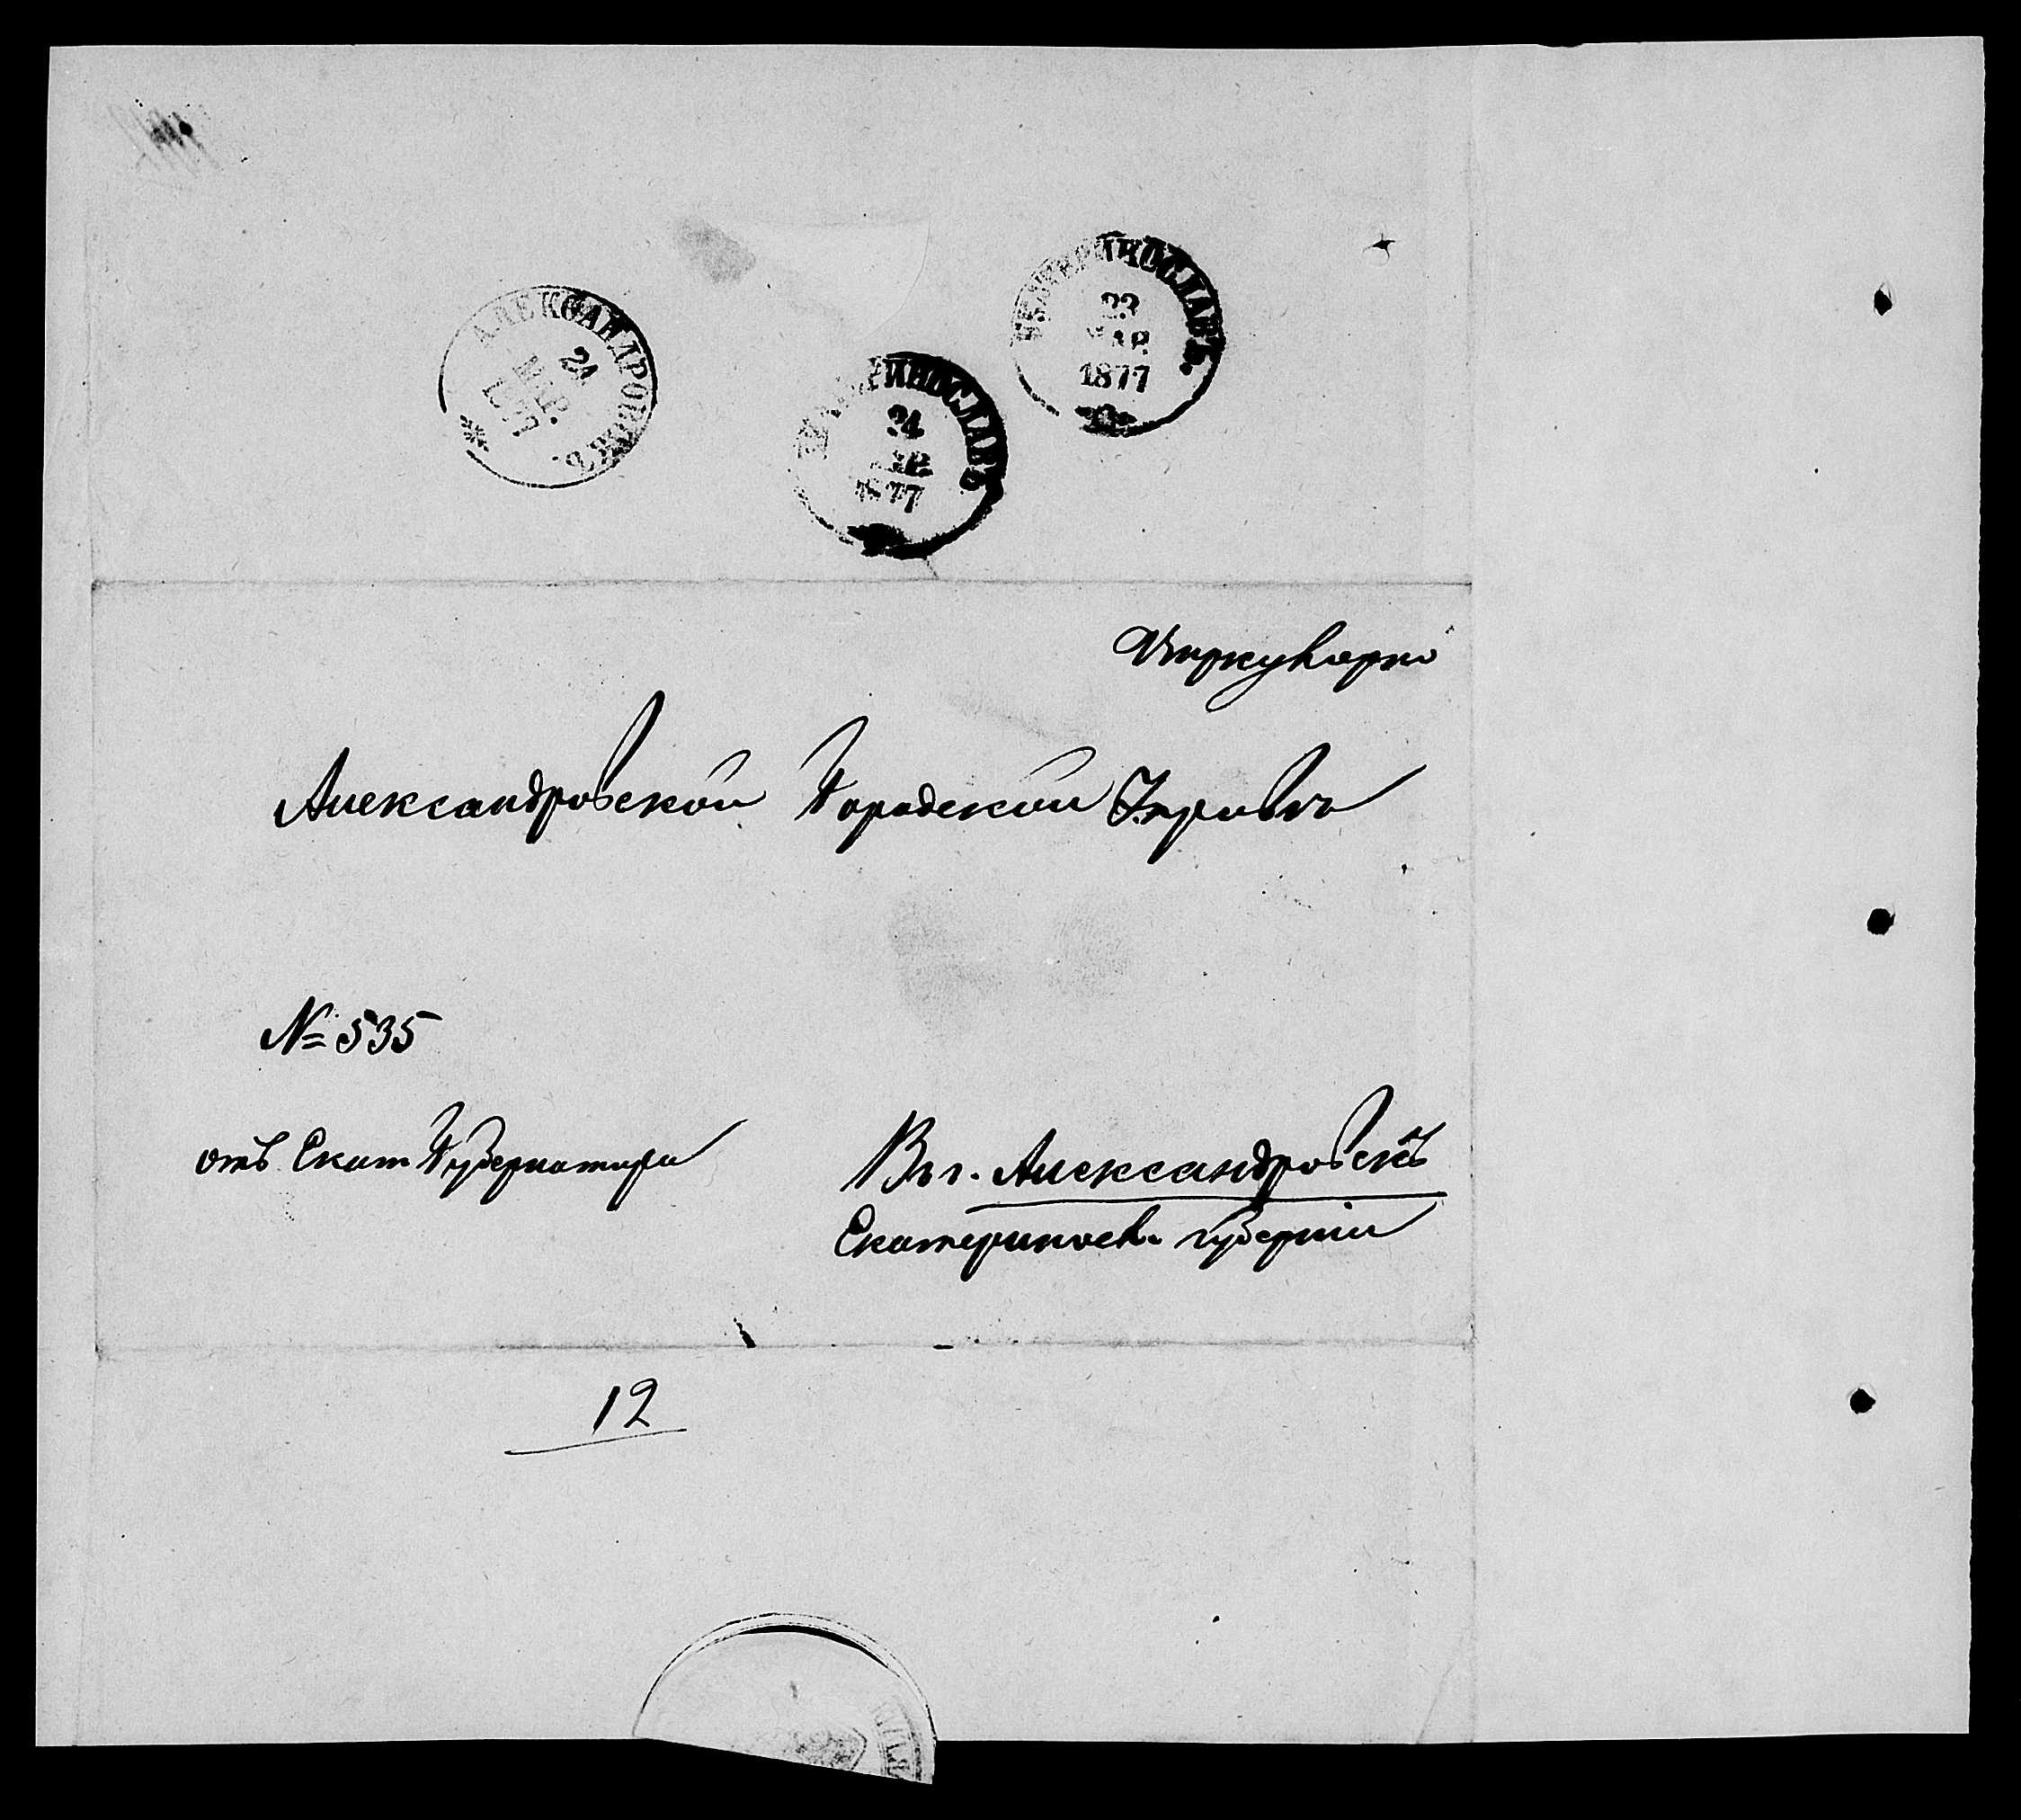 ЕКАТЕРИНОСЛАВЪ.
23
МАР.
1877
АЛЕКСАНДРОВСКЪ.
24
МАР.
1877
ЕКАТЕРИНОСЛАВЪ
24
МАР.
1877
Циркулярно
Александровской Городской Управѣ
№ 535
отъ Екат Губернатора
Въ г. Александровскѣ
Екатериносл. губерніи
12